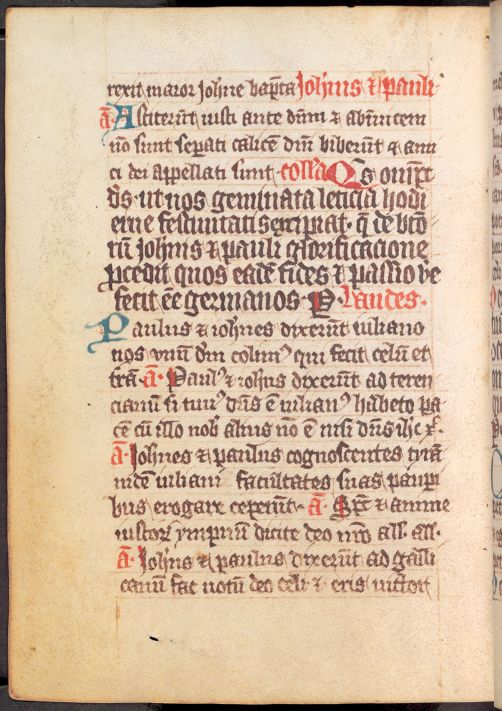 rexit maior Johne bapta Joh̅nis ⁊ pauli
a̅ Astiteru̅t iusti ante dn̅m ⁊ ab inuicem
no̅ sunt sep̅ati calice̅ dn̅i biberu̅t ⁊ ami
ci dei appellati sunt coll̅a Qs om̅ps
ds̅ ut nos geminata leticia hodi
erne festiuitatis excipiat q̅ de bt̅o
ru̅ joh̅nis ⁊ pauli glorificacione
ꝓcedit quos eade̅ fides ⁊ passio ve
re fecit e̅e germanos P Laudes
Paulus ⁊ ioh̅nes dixeru̅t iuliano
nos vnu̅ dm̅ colimꝰ qui fecit celu̅ et
tr̅a̅ a̅ Paulꝰ ⁊ ioh̅ns dixeru̅t ad teren
cianu̅ si tuus dn̅s e̅ iulianꝰ habeto pa
ce̅ cu̅ illo nob̅ alius no̅ e̅ nisi dn̅s ih̅c xp̅
a̅ Johnes ⁊ paulus cognoscentes tira̅
nide̅ iuliani facultates suas paupi
bus erogare ceperu̅t a̅ Sp̅c ⁊ anime
iustor̅ ympnu̅ dicite deo nr̅o all̅ all̅
a̅ Joh̅ns ⁊ paulus dixeru̅t ad galli
canu̅ fac votu̅ deo celi ⁊ eris victor